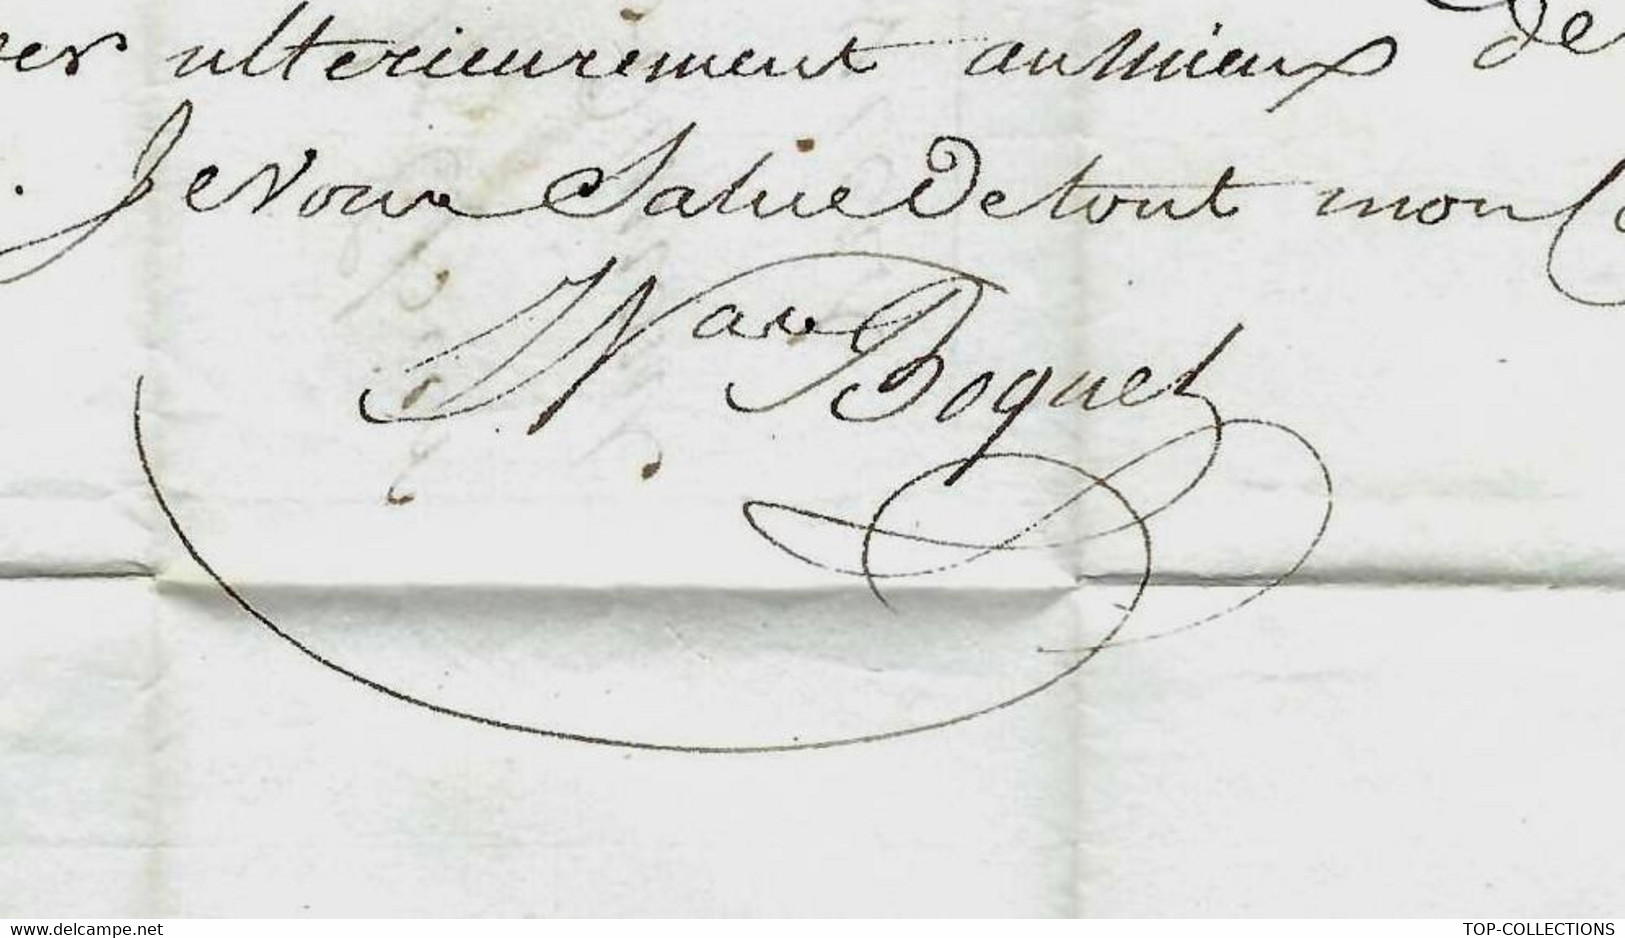 ver ulterieurement au Mieux de
. Je Vous Salue De tout mon
Boquet
www.delcampe.net
TOP-COLLECTIONS